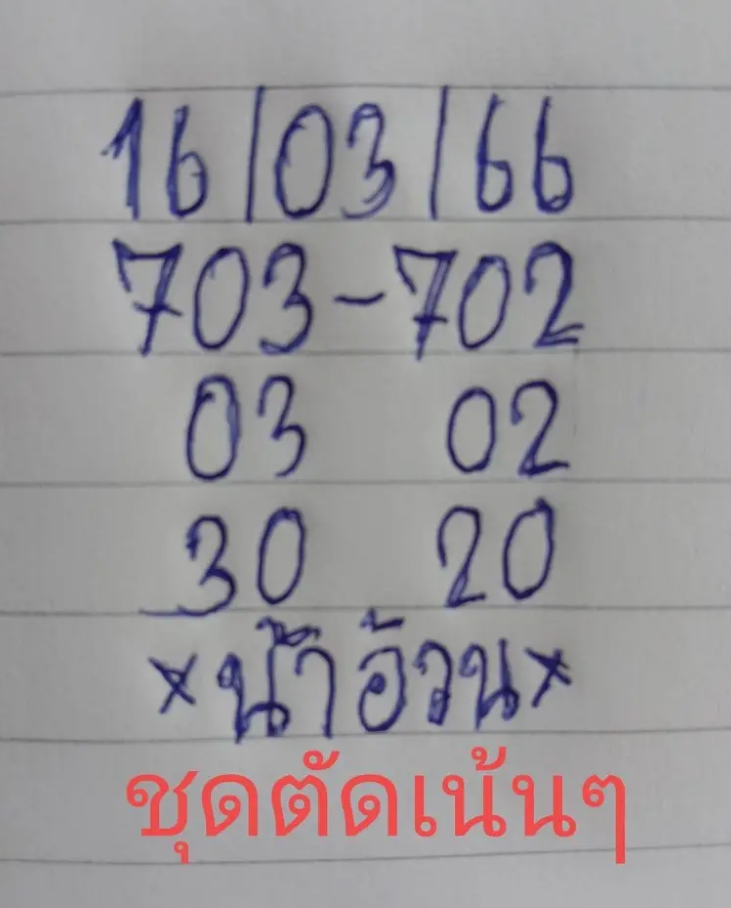 16/03/66
703-702
03 02
30 20
×น้าอ้วน×
ชุดตัดเน้นๆ